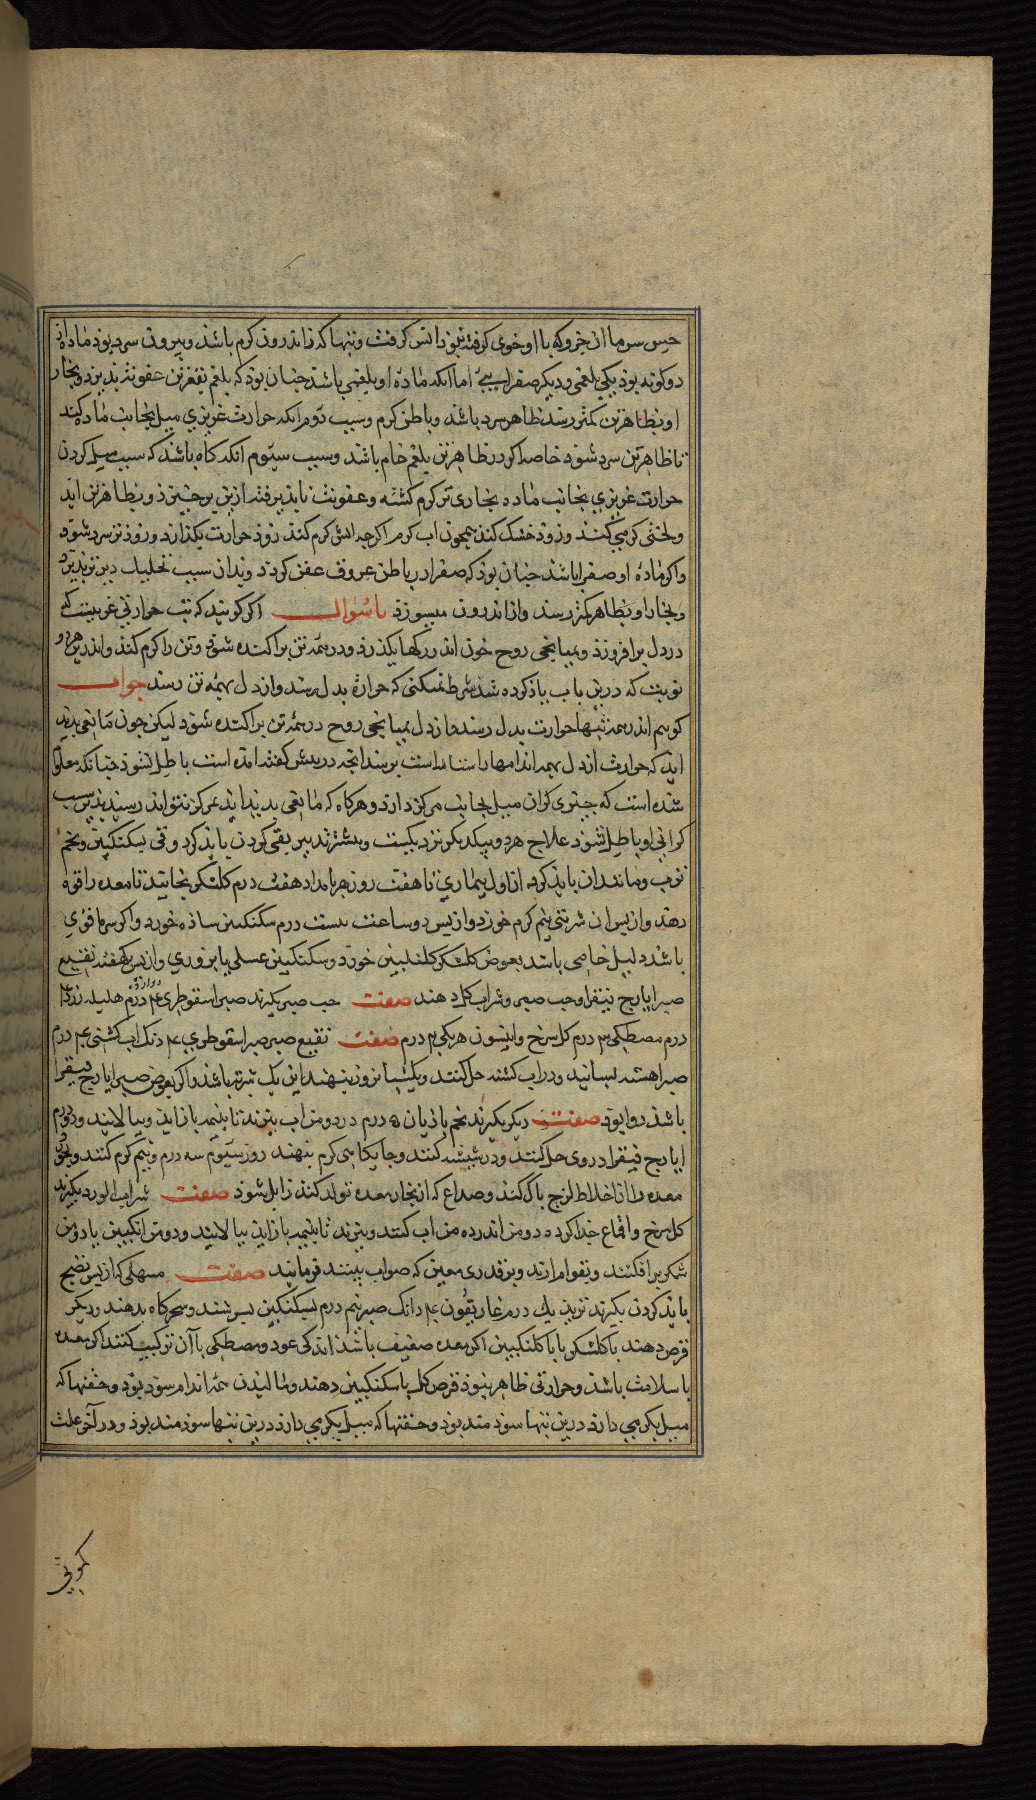 حس سرما از جزوکه با او خوی کرفته نبود اتس کرفت و تبها که از اندرون کرم باشذ و بیرون سرد بوذ ماده ان
دو کونه بوذ یکی بلغمی و دیکر صفرا اما انکه ماده او بلغمی باشذ جنان بوذ که بلغم بقعر تن عفونت بذیرذ و بخار
او بظاهر تن کمتر رسذ ظاهر سرد باشذ و باطن کرم و سبب دوم انکه حرارت غریزی میل بجانب ماده کند
تا ظاهر تن سرد شوذ خاصه اکر در ظاهر تن بلغم خام باشد و سبب سیوم انکه کاه باشذ که سبب میل کردن
حرارت غریزی بجانب ماده بخاری تر کرم کشته و عفونت نابذیرفته از تن برخیزذ و بظاهر تن اید
و لختی کرمی کنذ و زوذ خشک کنذ همجون اب کرم اکرجه اتش کرم کنذ زوذ حرارت بکذارد و زوذ تر سرد شوذ
و اکر ماده او صفرا باشذ جنان بوذ که صفرا در باطن عروق عفن کردد و بدان سبب تحلیل دیرتر بذیرذ
و بخار او بظاهر کمتر رسد و از اندرون میسوزذ باسوال اکر کویند که تب حرارتی غریبست که
در دل برافروزذ و بمیانجی روح خون اندر رکها بکذرذ و در همه تن براکنده شوذ و تن را کرم کنذ و اندرین هر دو
نوبت که درین باب یاذ کرده شذ شرط نمیکنی که حرارة بدل رسذ و از دل بهمه تن رسذ جواب
کوییم اندر همه تبها حرارت بدل رسذ و از دل بمیانجی روح در همه تن براکنده شوذ لیکن جون مانعی بدید
ایذ که حرارت از دل بهمه اندامها راست برسد انجه در بیش کفته امده است باطل نشوذ جنانکه معلوم
شده است که جیزی کران میل بجانب مرکز دارذ و هرکاه که مانعی بدید ایذ بمرکز نتواند رسید بدین سبب
کرانی او باطل نشوذ علاج هر دو بیکدیکر نزدیکست و بیشتر تدبیر بقی کردن بایذ کرد و قی بسکنکبین و تخم
ترب و مانند ان بایذ کرد و از اول بیماری تا هفت روز هر بامداد هفت درم کلشکر بخایند تا معده را قوه
دهذ و از بس ان شربتی نیم کرم خورد و از بس دو ساعت بیست درم سکنکبین ساذه خورد و اکر سرما قوی
باشذ دلیل خامی باشد بعوض کلشکر کلنکبین خورد و سکنکبین عسلی یا بزوری و از بس یکهفته نقیع
صبر ایارج فیقرا و حب صبر و شراب کل دهند صفت حب صبر بکیرند صبر اسقوطری درم هلیله زرد
درم مصطکی درم کل سرخ و انیسون هر یکی درم صفت نقیع صبر صبر اسقوطری دنک اب کشنی درم
صبر اهسته بسایند و در اب کشنه حل کنند و یکشبانروز بنهند این یک شربة باشذ و اکر بعوض صبر ایارج فیقرا
باشذ روا بوذ صفت دیکر بکیرند تخم باذیان ۵ درم در دو من اب ببزند تا بنیمه بازاید و ببالایند و درم
ایارج فیقرا در وی حل کنند و در شیشه کنند و جایکاهی کرم بنهند روز سیوم سه درم و نیم کرم کنند و بخورد
معده را از اخلاط لزج باک کنذ و صداع که از بخار معده تولد کند زایل شوذ صفت شراب الورد بکیرند
کل سرخ و اقماع جدا کرده دو من اندر ده من اب کنند و ببزند تا بنیمه بازاید ببالایند و دو من انکبین یا دو من
شکر برافکنند و بقوام ارند و بر قدری معین که صواب بینند فرمایند صفت مسهلی که از بس نضج
بایذ کردن بکیرند تربذ یک درم غاریقون دانک صبر نیم درم بسکنکبین بسرشند و سحرکاه بدهند و دیکر
قرص دهند با کلشکر یا با کلنکبین اکر معده ضعیف باشذ اندکی عود و مصطکی با آن ترکیب کنند اکر معده
با سلامت باشذ و حرارتی ظاهر نبوذ قرص کل با سکنکبین دهند و مالیدن همه اندام سوذ بوذ و حقنها که
میل بکرمی دارذ درین تبها سوذمند بوذ و حقنها که میل بکرمی دارذ درین تبها سوذمند بوذ و در آخر علت
کمونی